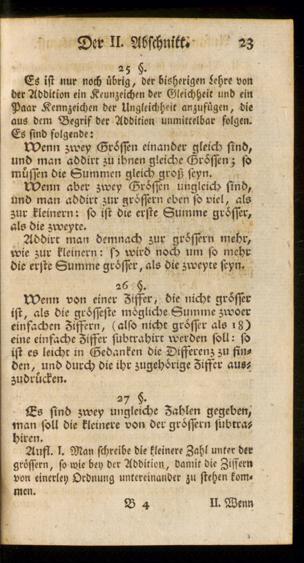 Der II. Abschnitt. 23
25 §.
Es ist nur noch übrig, der bisherigen Lehre von
der Addition ein Kennzeichen der Gleichheit und ein
Paar Kennzeichen der Ungleichheit anzufügen, die
aus dem Begrif der Addition unmittelbar folgen.
Es sind folgende:
Wenn zwey Grössen einander gleich sind,
und man addirt zu ihnen gleiche Grössen; so
müssen die Summen gleich groß seyn.
Wenn aber zwey Grössen ungleich sind,
und man addirt zur grössern eben so viel, als
zur kleinern: so ist die erste Summe grösser,
als die zweyte.
Addirt man demnach zur grössern mehr,
wie zur kleinern: so wird noch um so mehr
die erste Summe grösser, als die zweyte seyn.
26 §.
Wenn von einer Ziffer, die nicht grösser
ist, als die grösseste mögliche Summe zwoer
einfachen Ziffern, (also nicht grösser als 18)
eine einfache Ziffer subtrahirt werden soll: so
ist es leicht in Gedanken die Differenz zu fin-
den, und durch die ihr zugehörige Ziffer aus-
zudrücken.
27 §.
Es sind zwey ungleiche Zahlen gegeben,
man soll die kleinere von der grössern subtra-
hiren.
Aufl. I. Man schreibe die kleinere Zahl unter der
grössern, so wie bey der Addition, damit die Ziffern
von einerley Ordnung untereinander zu stehen kom-
men.
B 4 II. Wenn